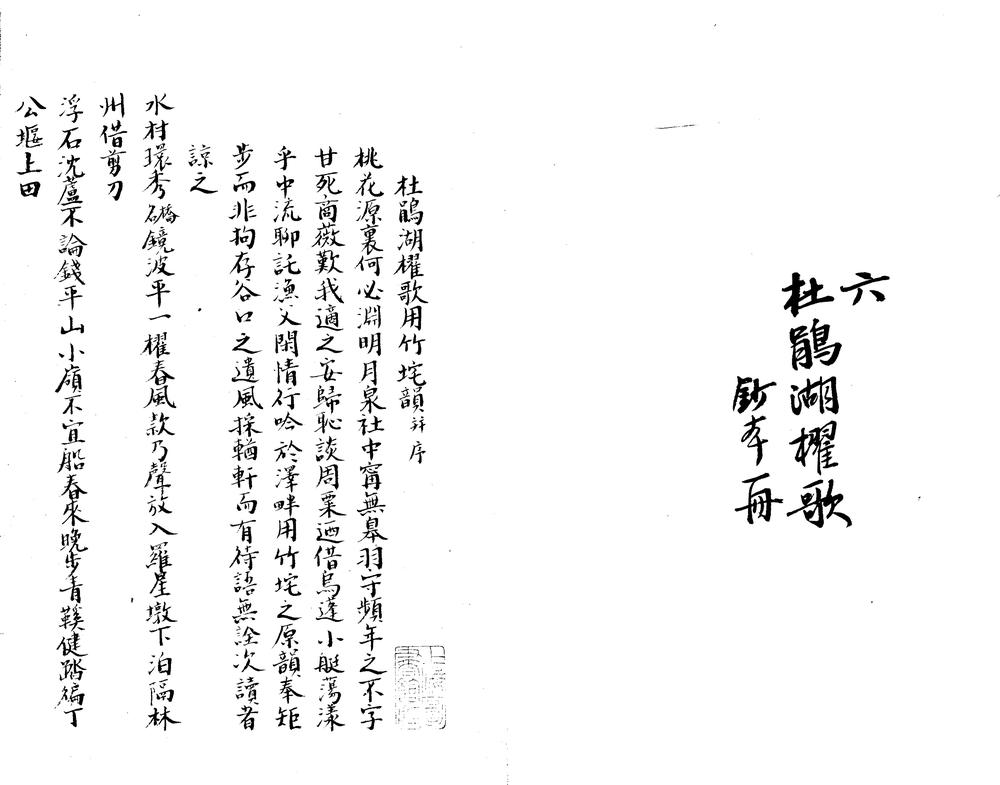 六
杜鵑湖櫂歌
鈔本一冊
杜鵑湖櫂歌用竹垞韻并序
桃花源裏何必淵明月泉社中甯無皋羽守頻年之不字
甘死商薇歎我適之安歸恥談周粟迺借烏篷小艇蕩漾
乎中流聊託漁父閑情行吟於澤畔用竹垞之原韻奉矩
步而非拘存谷口之遺風採輶軒而有待語無詮次讀者
諒之
水村環秀礄鏡波平一櫂春風款乃聲放入羅星墩下泊隔林
州借剪刀
浮石沈蘆不論錢平山小嶺不宜船春來晚步青鞵健踏徧丁
公堰上田